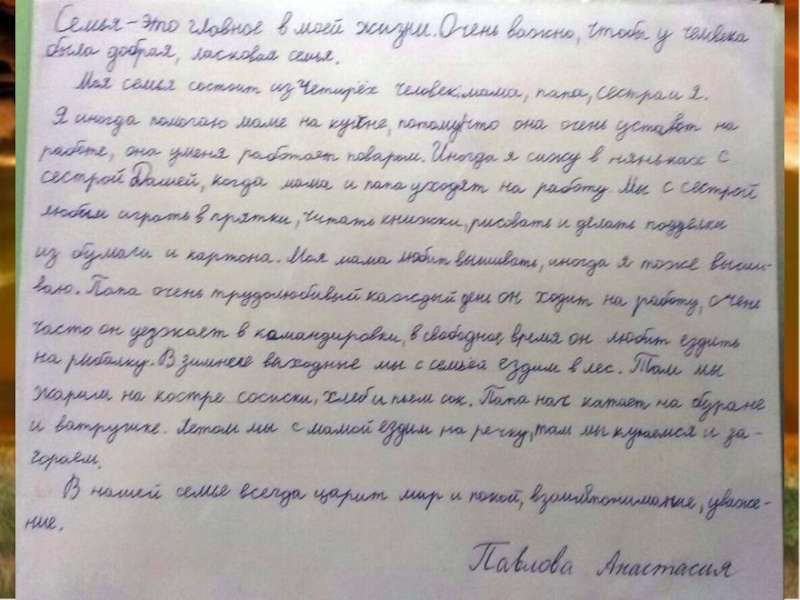 Семья-это главное в моей жизни. Очень важно, чтобы у человека
была добрая, ласковая семья.
Моя семья состоит из четырёх человек: мама, папа, сестра и я.
Я иногда помогаю маме на кухне, потому что она очень устаёт на
работе, она у меня работает поваром. Иногда я сижу в няньках с
сестрой Дашей, когда мама и папа уходят на работу. Мы с сестрой
любим играть в прятки, читать книжки, рисовать и делать подделки
из бумаги и картона. Моя мама любит вышивать, иногда я тоже выши-
ваю. Папа очень трудолюбивый каждый день он ходит на работу, очень
часто он уезжает в командировки, в свободное время он любит ездить
на рыбалку. В зимнее выходные мы с семьёй ездим в лес. Там мы
жарим на костре сосиски, хлеб и пьем сок. Папа нас катает на буране
и ватрушке. Летом мы с мамой ездим на речку, там мы купаемся и за-
гораем.
В нашей семье всегда царит мир и покой, взаимопонимание, уваже-
ние.
Павлова Анастасия